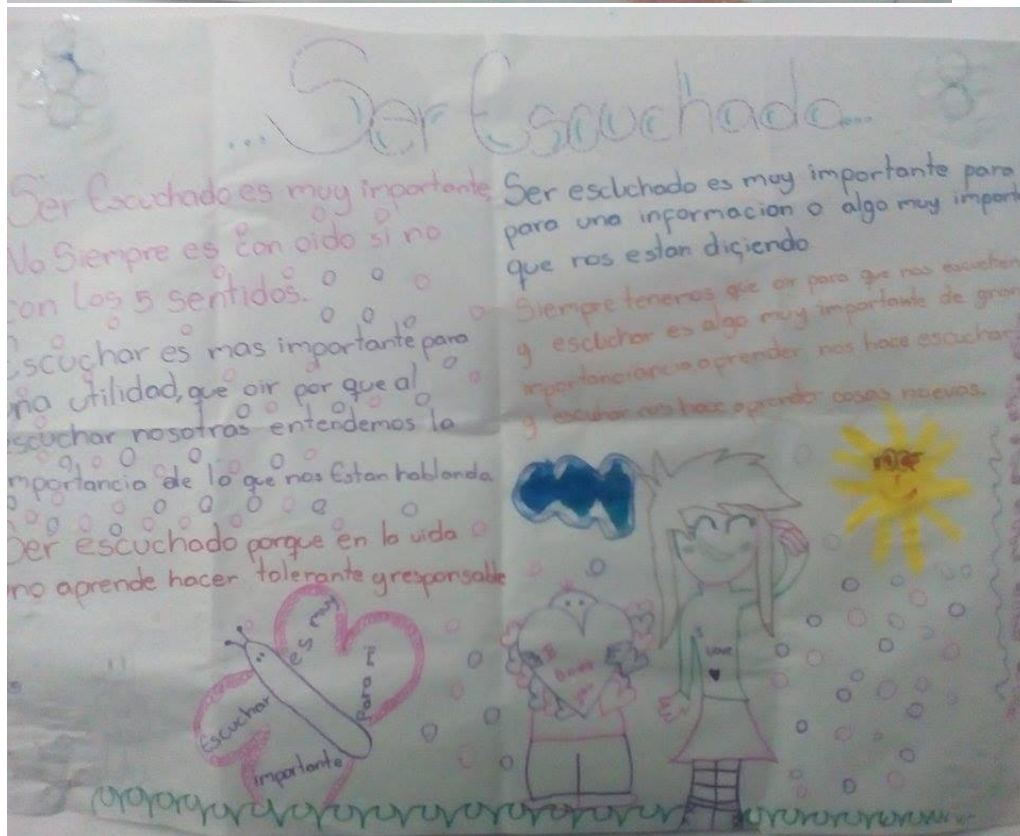 ...Ser Escuchado...
Ser Escuchado es muy importante
No Siempre es con oido si no
con los 5 sentidos.
Escuchar es mas importante para
una utilidad, que oir por que al
escuchar nosotras entendemos la
importancia de lo que nos Estan hablando
Ser escuchado porque en la vida
no aprende hacer tolerante y responsable
Ser escluchado es muy importante para
para una informacion o algo muy import
que nos estan diciendo
Siempre tenemos que oir para que nos escuchen
y escluchar es algo muy importante de gran
importanciancia aprender nos hace escuchar
y escuhar nos hace aprender cosas nuevas.
Escuchar
es muy
importante
Para mi
I
Love